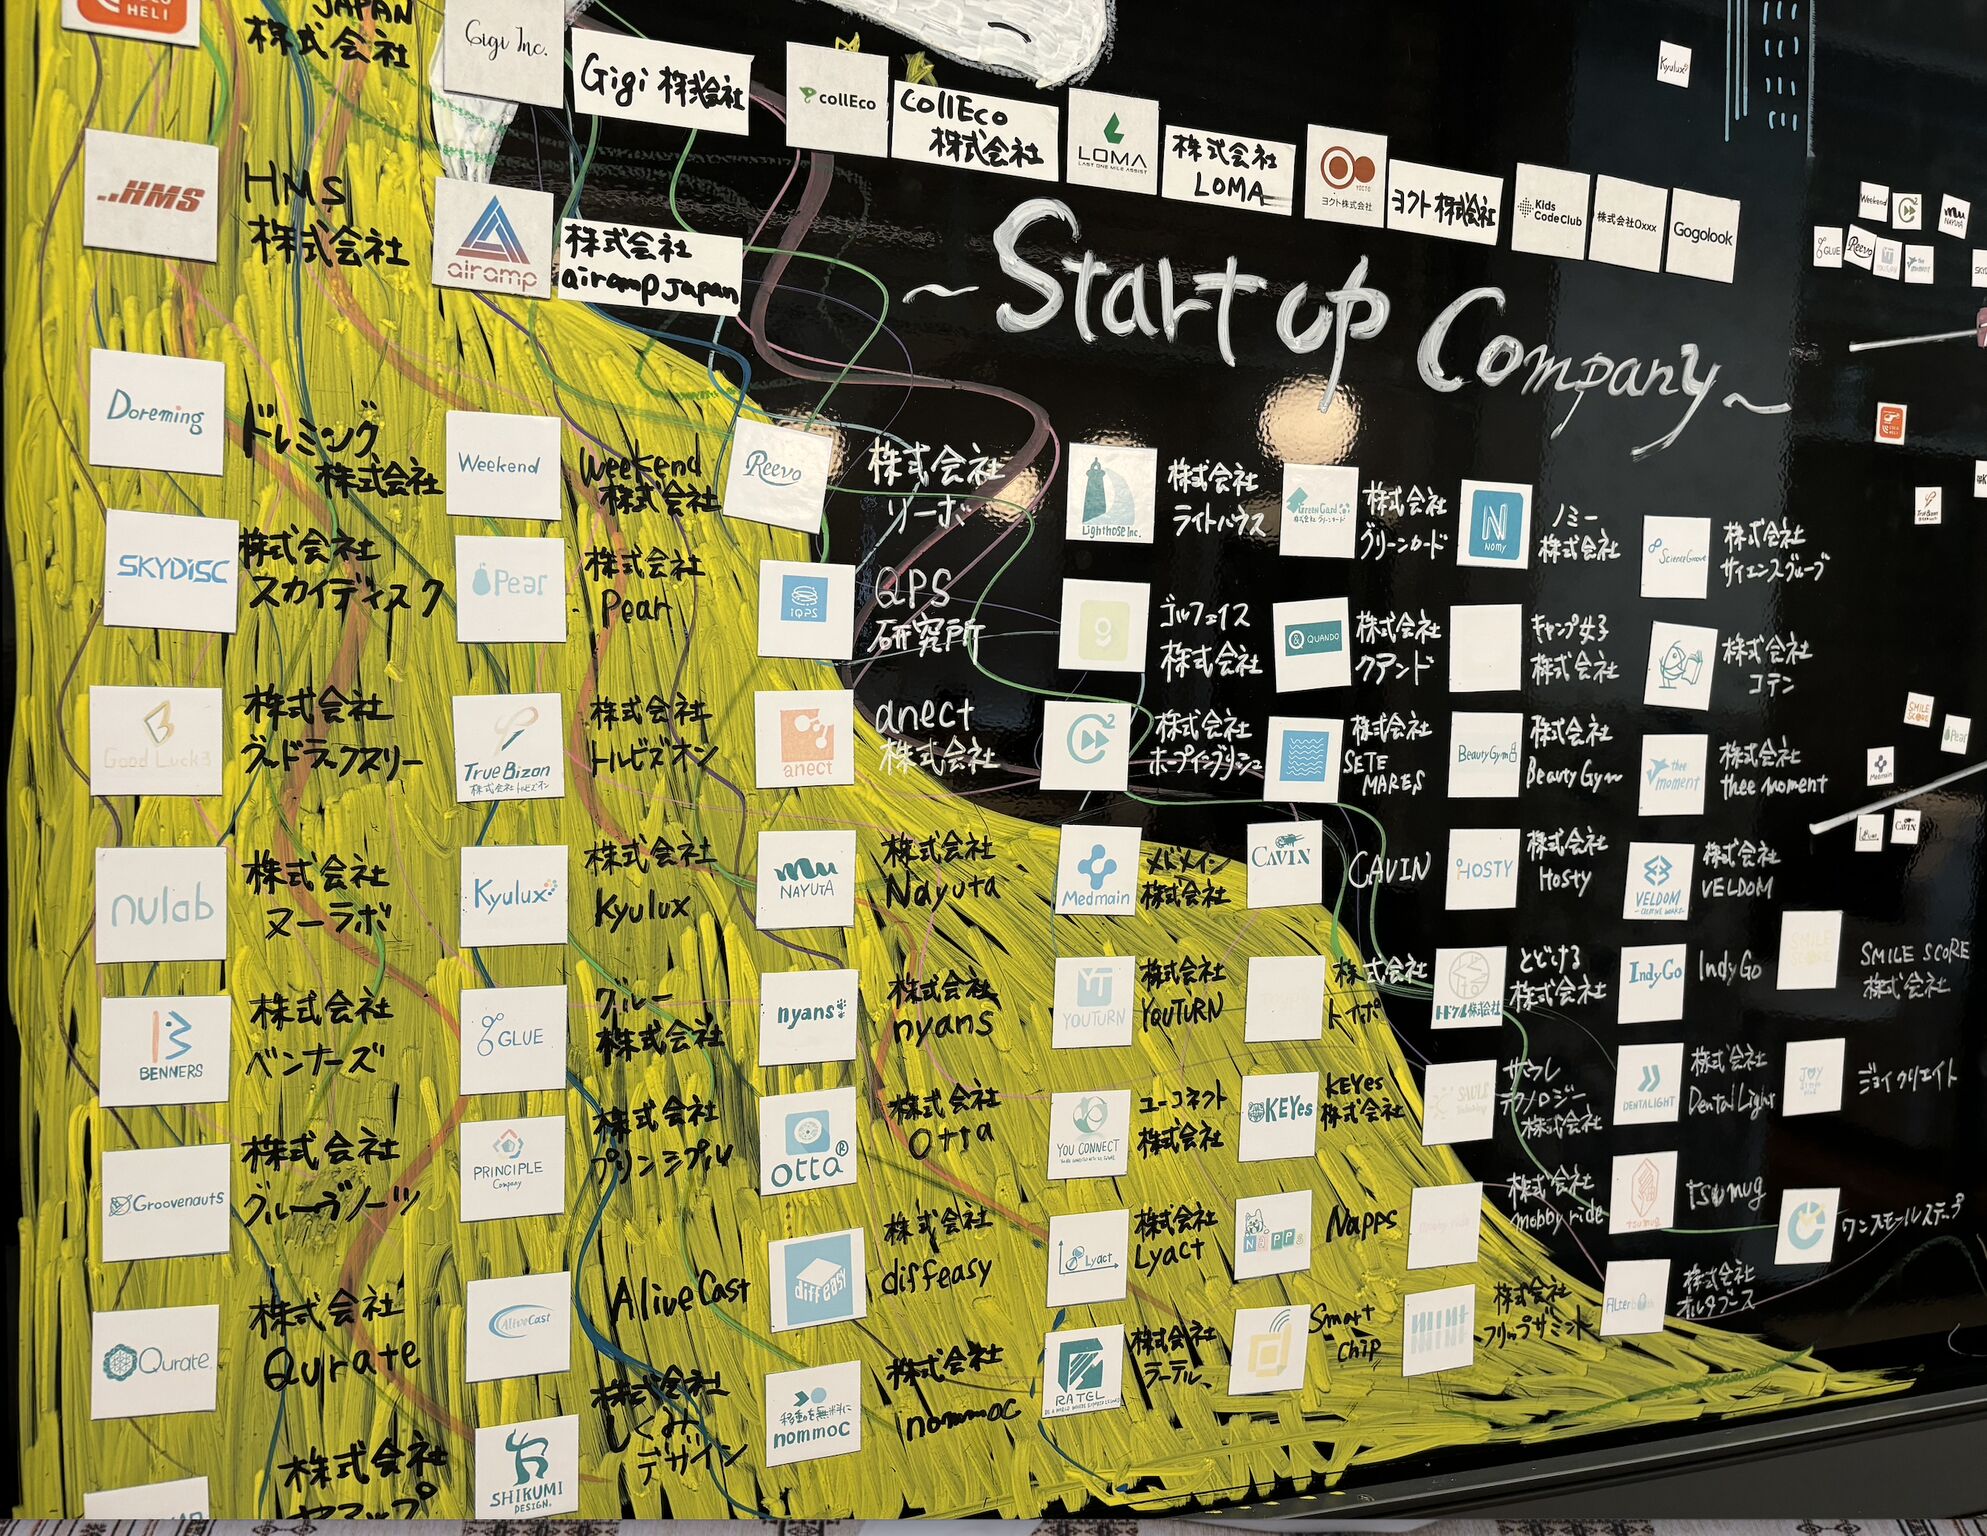 HELI
JAPAN
株式会社
Gigi Inc.
Gigi 株式会社
collEco
collEco
株式会社
LOMA
LAST ONE MILE ASSIST
株式会社
LOMA
YOCTO
ヨクト株式会社
ヨクト株式会社
Kids
Code Club
株式会社Oxxx
Gogolook
Kyulux
HMS
HMS
株式会社
airamp
株式会社
airamp japan
~Startup Company~
Doreming
ドレミング
株式会社
Weekend
Weekend
株式会社
Reevo
株式会社
リーボ
Lighthose Inc.
株式会社
ライトハウス
Green Card
株式会社グリーンカード
株式会社
グリーンカード
NOMY
ノミー
株式会社
ScienceGroove
株式会社
サイエンスグルーブ
SKYDISC
株式会社
スカイディスク
Pear
株式会社
Pear
iQPS
QPS
研究所
ゴルフェイス
株式会社
QUANDO
株式会社
クアンド
キャンプ女子
株式会社
株式会社
コテン
Good Luck3
株式会社
グッドラックスリー
TrueBizon
株式会社トルビズオン
株式会社
トルビズオン
anect
anect
株式会社
株式会社
ホープイングリッシュ
株式会社
SETE
MARES
BeautyGym
株式会社
BeautyGym
thee
moment
株式会社
thee moment
nulab
株式会社
ヌーラボ
Kyulux
株式会社
Kyulux
NAYUTA
株式会社
Nayuta
Medmain
メドメイン
株式会社
CAVIN
CAVIN
HOSTY
株式会社
Hosty
VELDOM
株式会社
VELDOM
BENNERS
株式会社
ベンナーズ
GLUE
グルー
株式会社
nyans
株式会社
nyans
YOUTURN
株式会社
YOUTURN
株式会社
トイポ
トドケル株式会社
とどける
株式会社
IndyGo
IndyGo
SMILE
SCORE
SMILE SCORE
株式会社
Groovenauts
株式会社
グルーヴノーツ
PRINCIPLE
Company
株式会社
プリンシプル
otta
株式会社
Otta
YOU CONNECT
ユーコネクト
株式会社
KEYes
KEYes
株式会社
サウレ
テクノロジー
株式会社
DENTALIGHT
株式会社
DentaLight
ジョイクリエイト
Qurate.
株式会社
Qurate
AliveCast
AliveCast
diffeasy
株式会社
diffeasy
Lyact
株式会社
Lyact
NAPPS
Napps
mobby ride
株式会社
mobby ride
tsumug
ワンスモールステップ
株式会社
SHIKUMI
DESIGN
株式会社
しくみ
デザイン
移動を無料に
nommoc
株式会社
nommoc
RATEL
株式会社
ラーテル
Smart
chip
株式会社
フリップザミント
株式会社
オルタブース
Weekend
NAYUTA
GLUE
Reevo
thee
moment
HELI
TrueBizon
SMILE
SCORE
Pear
Medmain
CAVIN